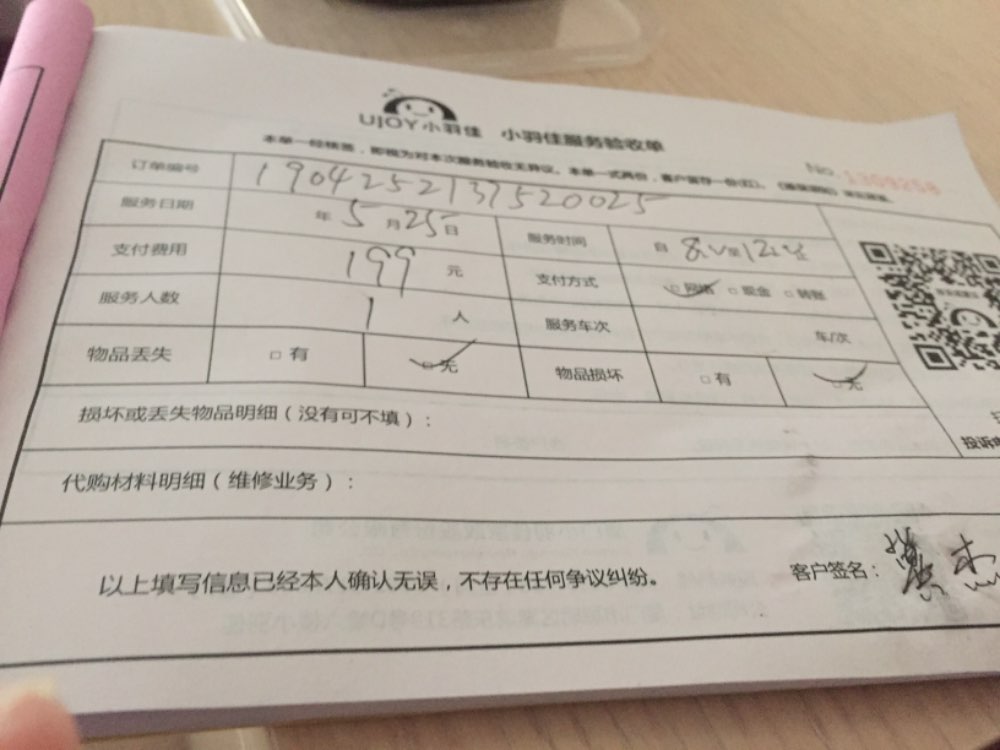 UJOY小羽佳 小羽佳服务验收单
本单一经核签，即视为对本次服务验收无异议。本单一式两份，客户留存一份(红)。
No. 1309258
订单编号 1904252137520025
服务日期 年5月25日 服务时间 自8:00至12:00止
支付费用 199元 支付方式 □网络 □现金 □转账
服务人数 1人 服务车次 车/次
物品丢失 □有 □无 物品损坏 □有 □无
损坏或丢失物品明细（没有可不填）：
投诉
代购材料明细（维修业务）：
以上填写信息已经本人确认无误，不存在任何争议纠纷。 客户签名：